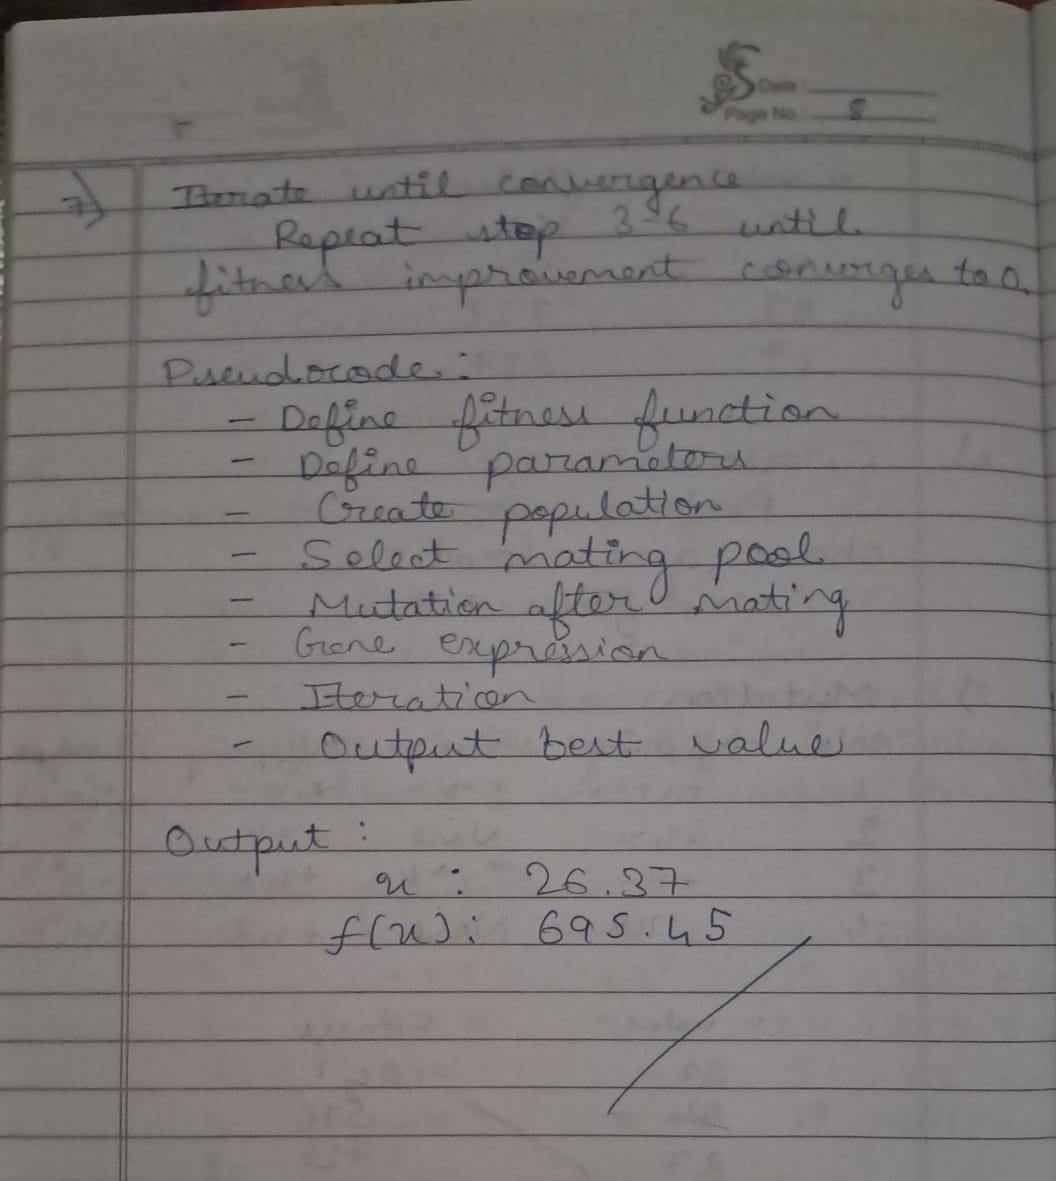 Date:
Page No.: 8
7) Iterate until convergence
Repeat step 3-6 until
fitness improvement converges to 0.
Pseudocode:
- Define fitness function
- Define parameters
- Create population
- Select mating pool
- Mutation after mating
- Gene expression
- Iteration
- Output best value
Output:
x : 26.37
f(x): 695.45